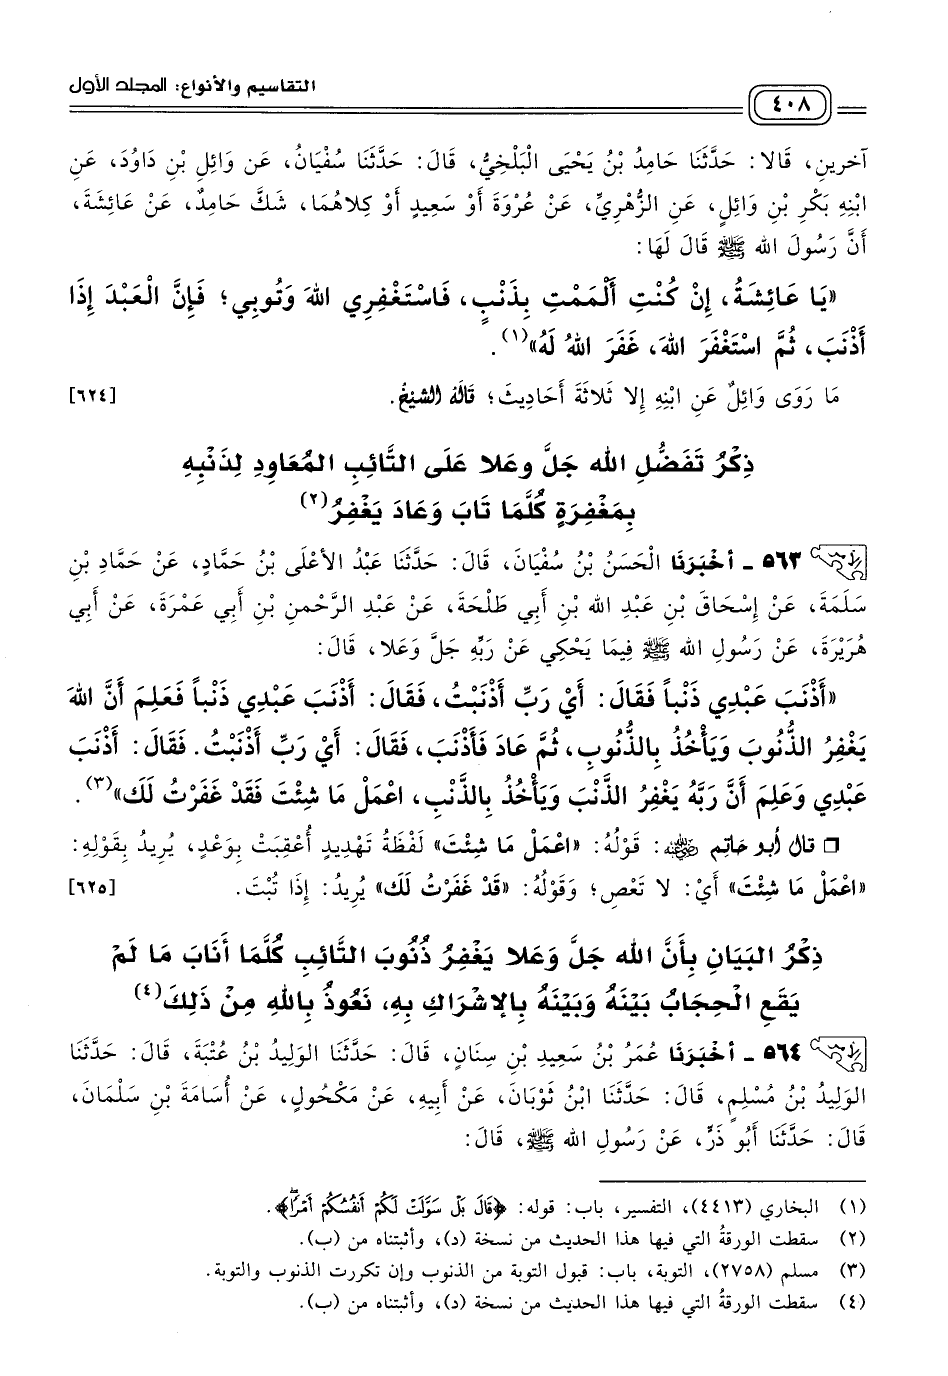 التقاسيم والأنواع: المجلد الأول
٤٠٨
آخرين، قَالا: حَدَّثَنَا حَامِدُ بْنُ يَحْيَى الْبَلْخِيُّ، قَالَ: حَدَّثَنَا سُفْيَانُ، عَن وَائِلِ بْنِ دَاوُدَ، عَنِ
ابْنِهِ بَكْرِ بْنِ وَائِلٍ، عَنِ الزُّهْرِيِّ، عَنْ عُرْوَةَ أَوْ سَعِيدٍ أَوْ كِلاهُمَا، شَكَّ حَامِدٌ، عَنْ عَائِشَةَ،
أَنَّ رَسُولَ الله ﷺ قَالَ لَهَا:
«يَا عَائِشَةُ، إِنْ كُنْتِ أَلْمَمْتِ بِذَنْبٍ، فَاسْتَغْفِرِي اللهَ وَتُوبِي؛ فَإِنَّ الْعَبْدَ إِذَا
أَذْنَبَ، ثُمَّ اسْتَغْفَرَ اللهَ، غَفَرَ اللهُ لَهُ»(١).
مَا رَوَى وَائِلٌ عَنِ ابْنِهِ إِلا ثَلاثَةَ أَحَادِيثَ؛ قَالَهُ الشَّيْخُ. [٦٢٤]
ذِكْرُ تَفَضُّلِ الله جَلَّ وعَلا عَلَى التَّائِبِ المُعَاوِدِ لِذَنْبِهِ
بِمَغْفِرَةٍ كُلَّمَا تَابَ وَعَادَ يَغْفِرُ(٢)
٥٦٣ - أَخْبَرَنَا الْحَسَنُ بْنُ سُفْيَانَ، قَالَ: حَدَّثَنَا عَبْدُ الأَعْلَى بْنُ حَمَّادٍ، عَنْ حَمَّادِ بْنِ
سَلَمَةَ، عَنْ إِسْحَاقَ بْنِ عَبْدِ الله بْنِ أَبِي طَلْحَةَ، عَنْ عَبْدِ الرَّحْمنِ بْنِ أَبِي عَمْرَةَ، عَنْ أَبِي
هُرَيْرَةَ، عَنْ رَسُولِ الله ﷺ فِيمَا يَحْكِي عَنْ رَبِّهِ جَلَّ وَعَلا، قَالَ:
«أَذْنَبَ عَبْدِي ذَنْباً فَقَالَ: أَيْ رَبِّ أَذْنَبْتُ، فَقَالَ: أَذْنَبَ عَبْدِي ذَنْباً فَعَلِمَ أَنَّ اللهَ
يَغْفِرُ الذُّنُوبَ وَيَأْخُذُ بِالذُّنُوبِ، ثُمَّ عَادَ فَأَذْنَبَ، فَقَالَ: أَيْ رَبِّ أَذْنَبْتُ. فَقَالَ: أَذْنَبَ
عَبْدِي وَعَلِمَ أَنَّ رَبَّهُ يَغْفِرُ الذَّنْبَ وَيَأْخُذُ بِالذَّنْبِ، اعْمَلْ مَا شِئْتَ فَقَدْ غَفَرْتُ لَكَ»(٣).
❒ قال أبو حاتم رضي الله عنه: قَوْلُهُ: «اعْمَلْ مَا شِئْتَ» لَفْظَةُ تَهْدِيدٍ أُعْقِبَتْ بِوَعْدٍ، يُرِيدُ بِقَوْلِهِ:
«اعْمَلْ مَا شِئْتَ» أَيْ: لا تَعْصِ؛ وَقَوْلُهُ: «قَدْ غَفَرْتُ لَكَ» يُرِيدُ: إِذَا تُبْتَ. [٦٢٥]
ذِكْرُ البَيَانِ بِأَنَّ الله جَلَّ وَعَلا يَغْفِرُ ذُنُوبَ التَّائِبِ كُلَّمَا أَنَابَ مَا لَمْ
يَقَعِ الْحِجَابُ بَيْنَهُ وَبَيْنَهُ بِالإشْرَاكِ بِهِ، نَعُوذُ بِاللهِ مِنْ ذَلِكَ(٤)
٥٦٤ - أَخْبَرَنَا عُمَرُ بْنُ سَعِيدِ بْنِ سِنَانٍ، قَالَ: حَدَّثَنَا الوَلِيدُ بْنُ عُتْبَةَ، قَالَ: حَدَّثَنَا
الوَلِيدُ بْنُ مُسْلِمٍ، قَالَ: حَدَّثَنَا ابْنُ ثَوْبَانَ، عَنْ أَبِيهِ، عَنْ مَكْحُولٍ، عَنْ أُسَامَةَ بْنِ سَلْمَانَ،
قَالَ: حَدَّثَنَا أَبُو ذَرٍّ، عَنْ رَسُولِ الله ﷺ، قَالَ:
(١) البخاري (٤٤١٣)، التفسير، باب: قوله: ﴿قَالَ بَلْ سَوَّلَتْ لَكُمْ أَنفُسُكُمْ أَمْرًا﴾.
(٢) سقطت الورقةُ التي فيها هذا الحديث من نسخة (د)، وأثبتناه من (ب).
(٣) مسلم (٢٧٥٨)، التوبة، باب: قبول التوبة من الذنوب وإن تكررت الذنوب والتوبة.
(٤) سقطت الورقةُ التي فيها هذا الحديث من نسخة (د)، وأثبتناه من (ب).